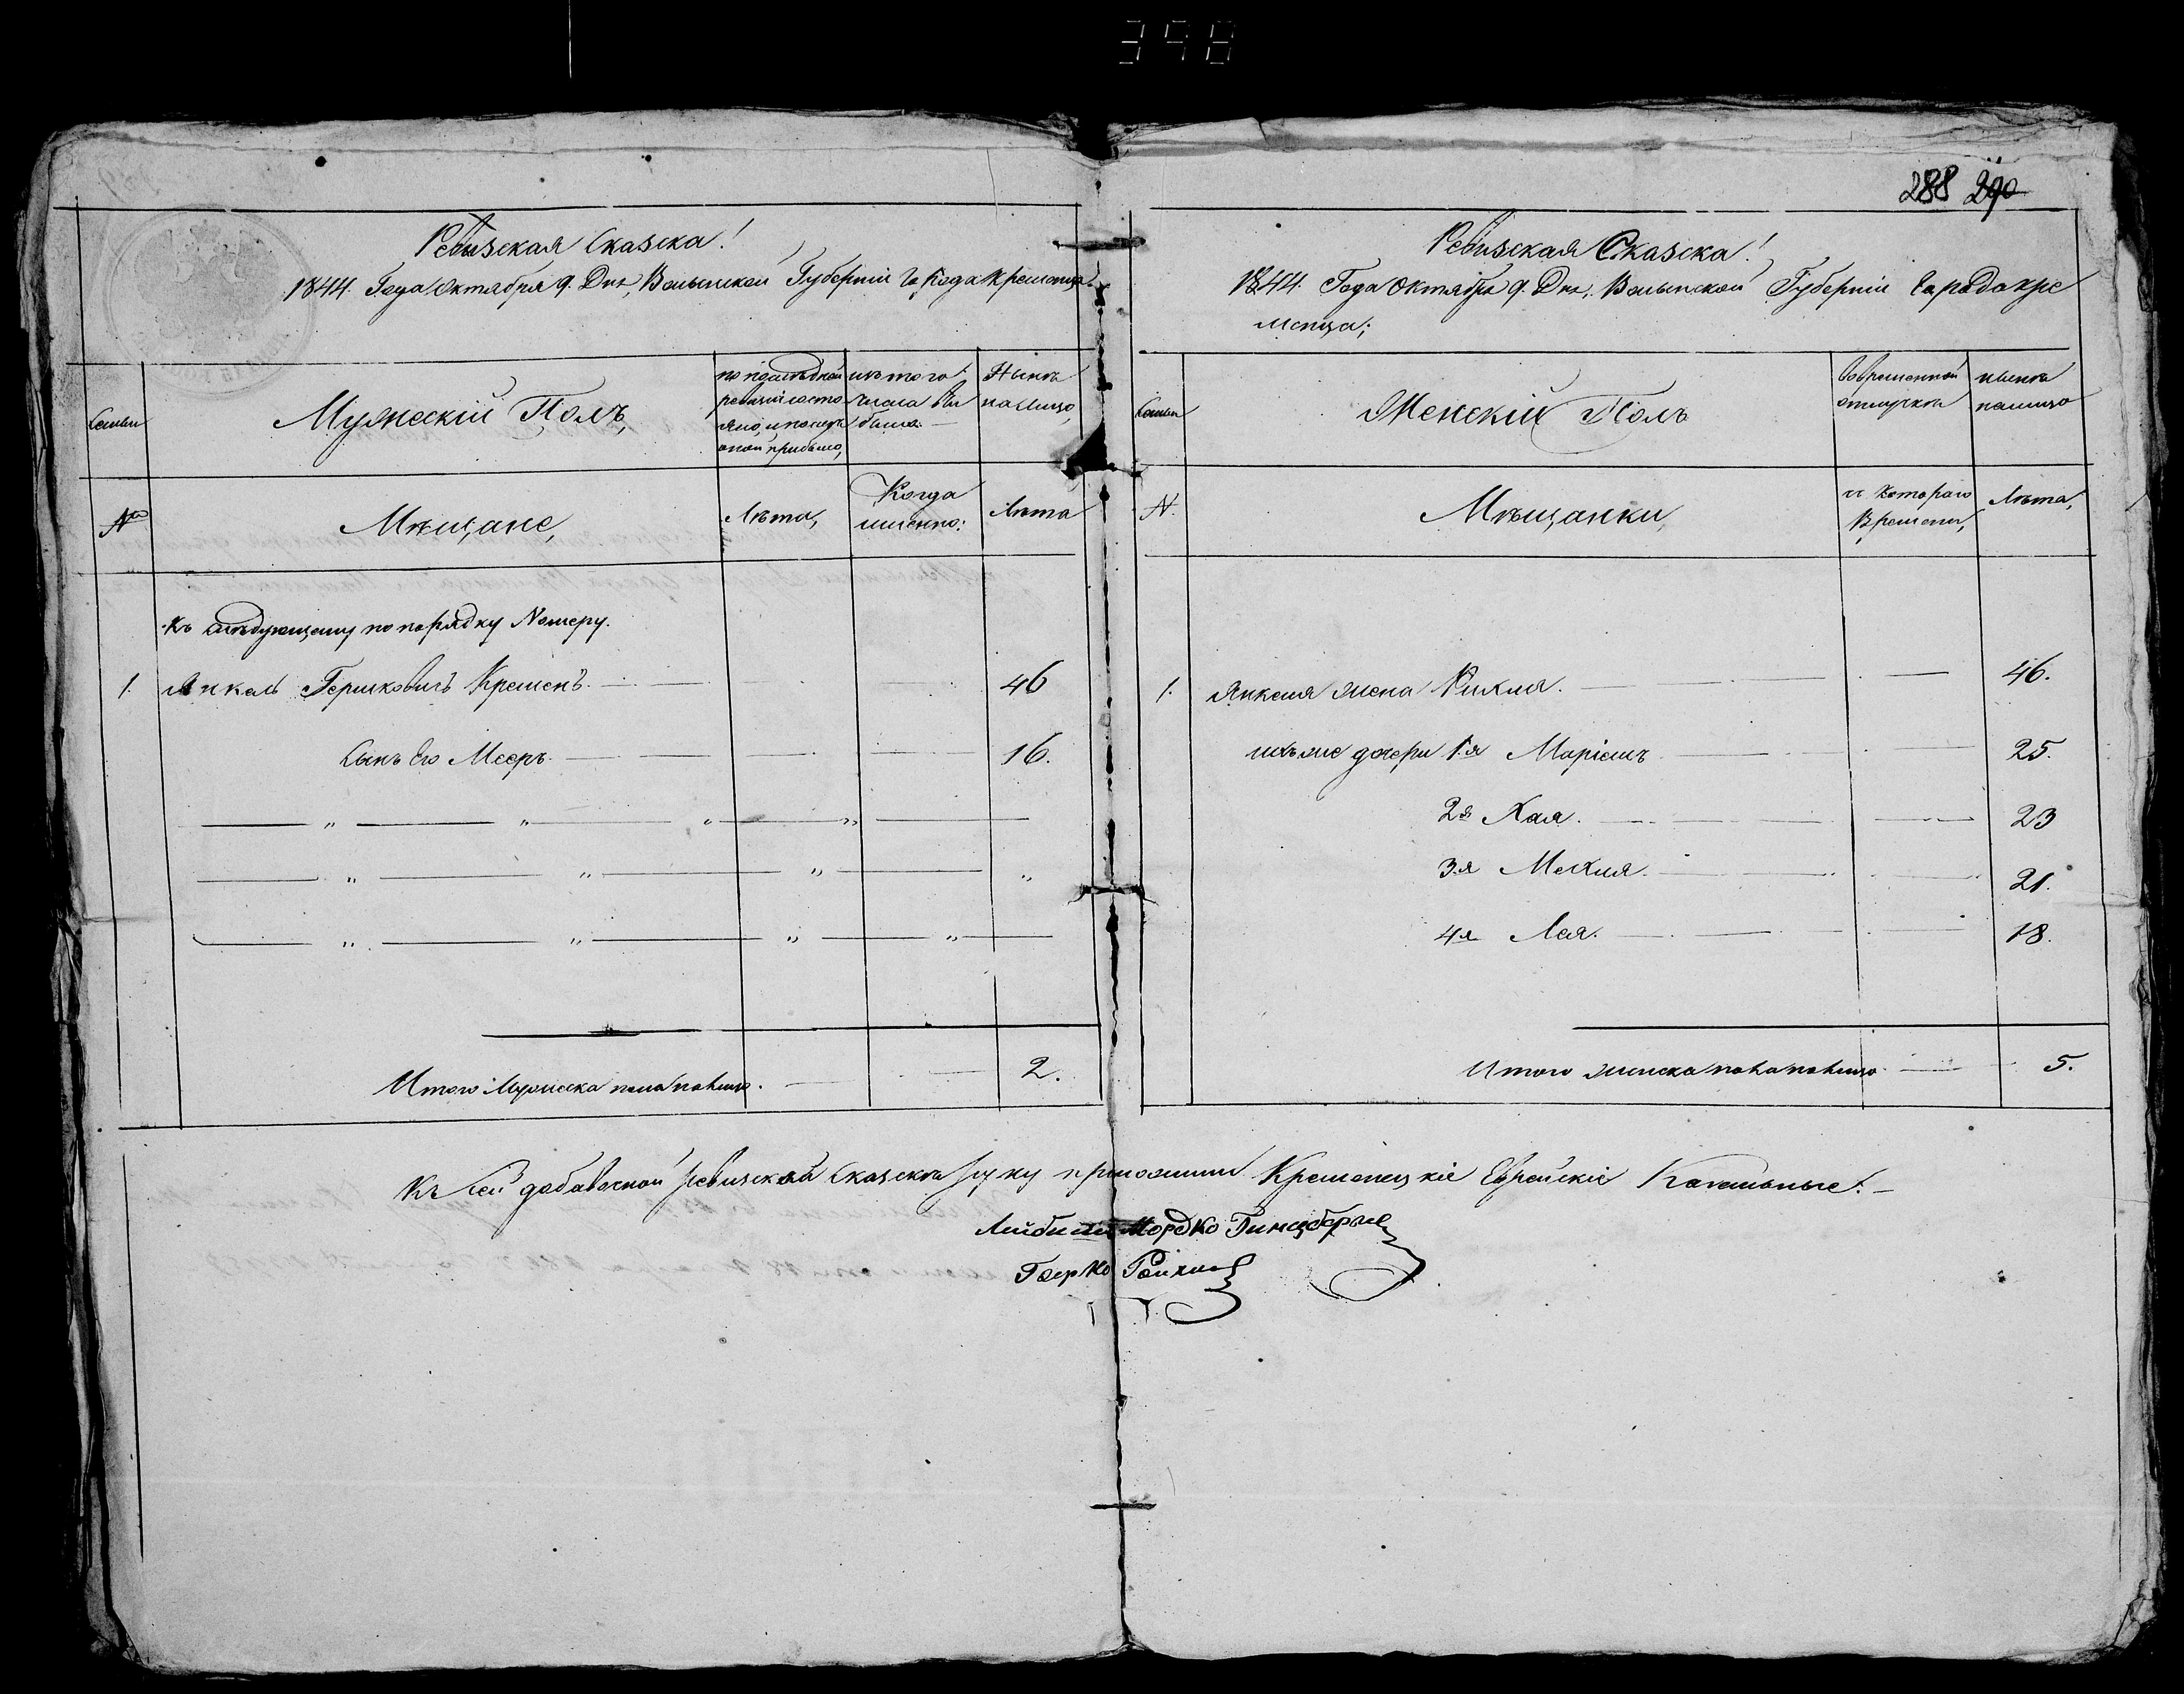 398
288 290
Ревизская Сказка!
1844. Года Октября 9. Дня, Волынской Губерніи Города Кременца
Семьи
Мужескій Полъ,
по послѣдной
ревизіи состо
яло, и послѣ
оной прибыло,
изъ того
числа вы
было
Нынѣ
налицо,
№
Мѣщане,
Лѣта,
Когда
именно:
Лѣта
Къ слѣдующему по порядку Номеру.
1. Янкель Гершковичъ Кременъ. 46
Сынъ Его Мееръ. 16.
Итого Мужеска пола налицо. 2.
Ревизская Сказка!
1844. Года Октября 9. Дня, Волынской Губерніи Города Кре
менца;
Семьи
Женскій Полъ
Во временной
отлучкѣ
нынѣ
налицо
N.
Мѣщанки,
съ котораго
Времени,
Лѣта,
1. Янкеля жена Рихля. 46.
ихъ же дочери 1.я Маріемъ 25.
2я Хая. 23
3.я Мехля. 21.
4я Лея. 18.
Итого женска пола налицо 5.
Къ сей добавочной ревизской Сказкѣ руку приложили Кременецкіе Еврейские Кагальные:
Мордко Гинцбергъ
Герко